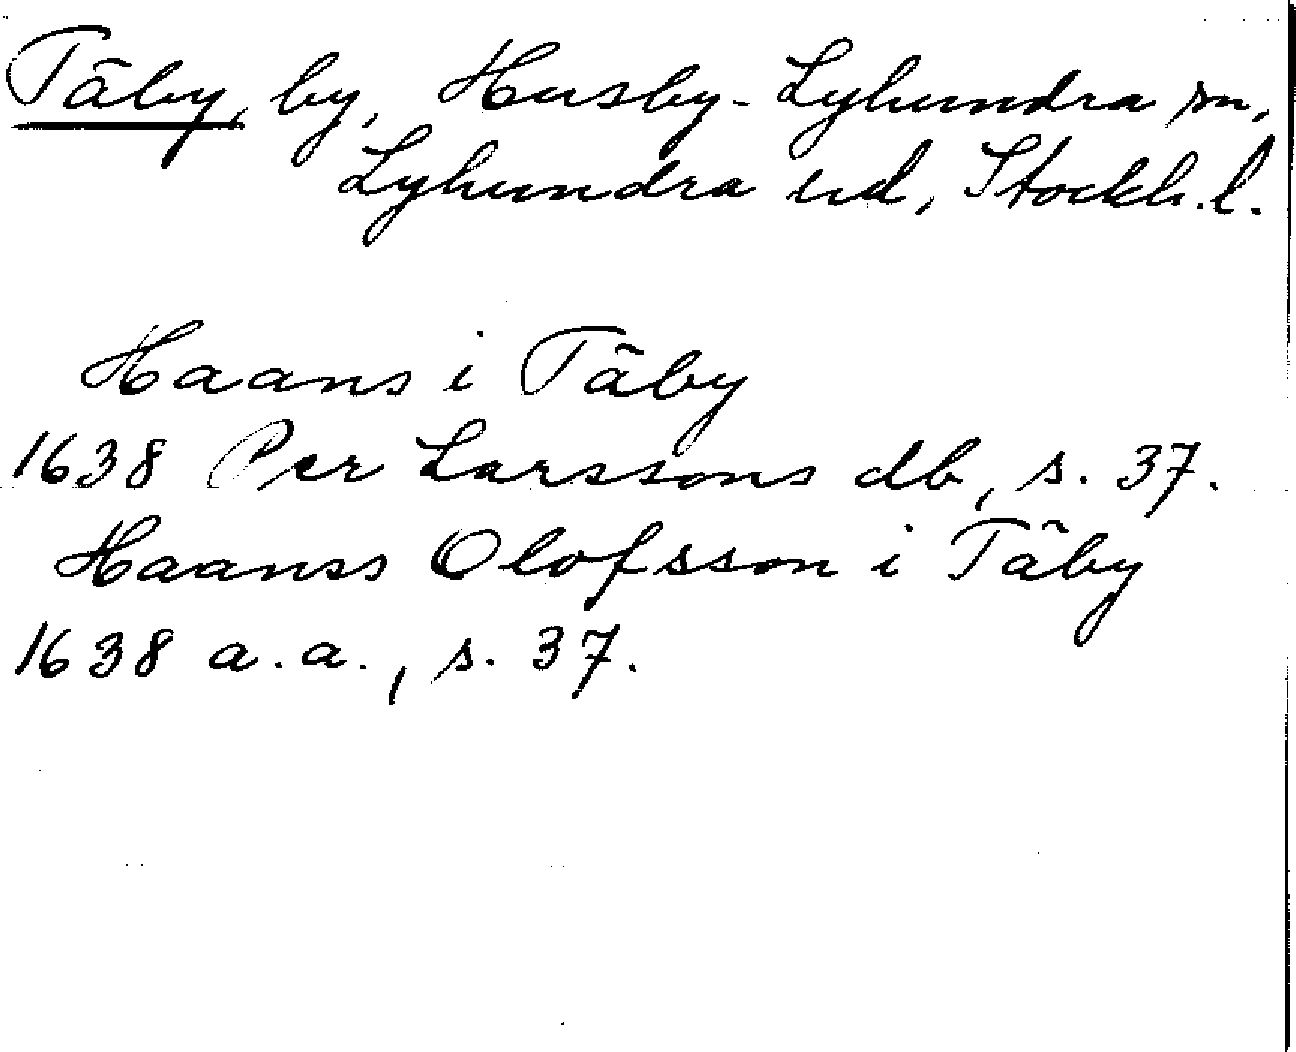 Täby, by, Husby-Lyhundra sn,
Lyhundra hd, Stockh. l.
Haans i Täby
1638 Per Larssons db, s. 37.
Haanss Olofsson i Täby
1638 a.a., s. 37.